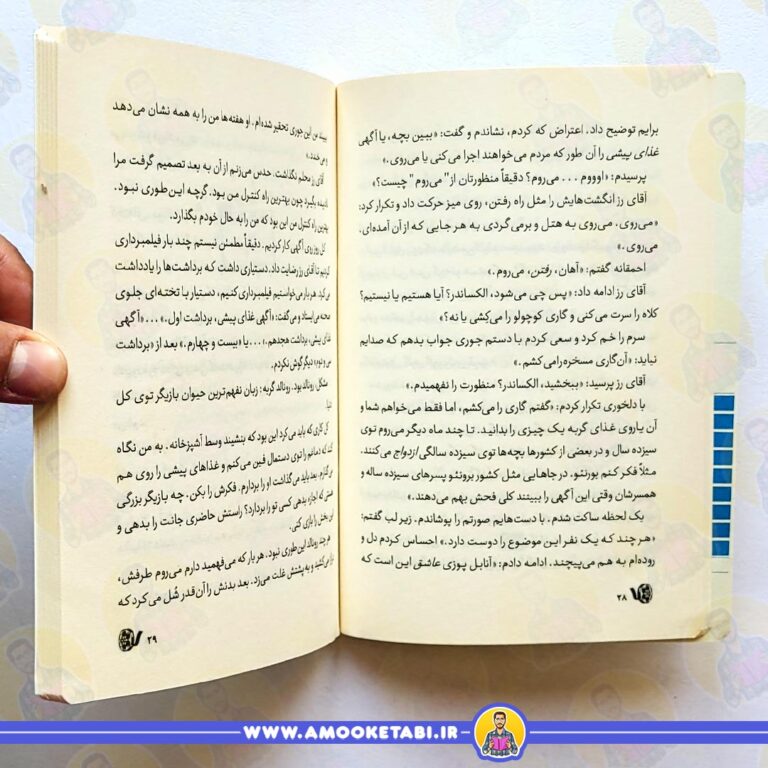 برایم توضیح داد. اعتراض که کردم، نشاندم و گفت: «ببین بچه، یا آگهی
غذای پیشی را آن طور که مردم می‌خواهند اجرا می‌کنی یا می‌روی.»
پرسیدم: «اوووم ... می‌روم؟ دقیقاً منظورتان از "می‌روم" چیست؟»
آقای رز انگشت‌هایش را مثل راه رفتن، روی میز حرکت داد و تکرار کرد:
«می‌روی. می‌روی به هتل و برمی‌گردی به هر جایی که از آن آمده‌ای.
می‌روی.»
احمقانه گفتم: «آهان، رفتن، می‌روم.»
آقای رز ادامه داد: «پس چی می‌شود، الکساندر؟ آیا هستیم یا نیستیم؟
کلاه را سرت می‌کنی و گاری کوچولو را می‌کِشی یا نه؟»
سرم را خم کرد و سعی کردم با دستم جوری جواب بدهم که صدایم
نیاید: «آن گاری مسخره را می‌کشم.»
آقای رز پرسید: «ببخشید، الکساندر؟ منظورت را نفهمیدم.»
با دلخوری تکرار کردم: «گفتم گاری را می‌کشم، اما فقط می‌خواهم شما و
آن یاروی غذای گربه یک چیزی را بدانید. تا چند ماه دیگر می‌روم توی
سیزده سال و در بعضی از کشورها بچه‌ها توی سیزده سالگی ازدواج می‌کنند.
مثلاً فکر کنم بورنئو. در جاهایی مثل کشور برونئو پسرهای سیزده ساله و
همسرشان وقتی این آگهی را ببینند کلی فحش بهم می‌دهند.»
یک لحظه ساکت شدم. با دست‌هایم صورتم را پوشاندم. زیر لب گفتم:
«هر چند که یک نفر این موضوع را دوست دارد.» احساس کردم دل و
روده‌ام به هم می‌پیچند. ادامه دادم: «آنابل پوزی عاشق این است که
۲۸
ببیند من این جوری تحقیر شده‌ام. او هفته‌ها من را به همه نشان می‌دهد
و می‌خندد.»
آقای رز محلم نگذاشت. حدس می‌زنم از آن به بعد تصمیم گرفت مرا
نادیده بگیرد چون بهترین راه کنترل من بود. گرچه این‌طوری نبود.
بهترین راه کنترل من این بود که من را به حال خودم بگذارد.
کل روز روی آگهی کار کردیم. دقیقاً مطمئن نیستم چند بار فیلمبرداری
کردیم تا آقای رز رضایت داد. دستیاری داشت که برداشت‌ها را یادداشت
می‌کرد. هر بار می‌خواستیم فیلمبرداری کنیم، دستیار با تخته‌ای جلوی
صحنه می‌ایستاد و می‌گفت: «آگهی غذای پیشی، برداشت اول.» ... «آگهی
غذای پیشی، برداشت هجدهم.» ... یا «بیست و چهارم.» بعد از «برداشت
سی و دوم» دیگر گوش نکردم.
مشکل رونالد بود. رونالد گربه: زبان نفهم‌ترین حیوان بازیگر توی کل
دنیا.
کل کاری که باید می‌کرد این بود که بنشیند وسط آشپزخانه. به من نگاه
کند که دماغم را توی دستمال فین می‌کنم و غذاهای پیشی را روی هم
می‌گذارم. بعد باید می‌گذاشت او را بردارم. فکرش را بکن. چه بازیگر بزرگی
هستی که اجازه بدهی کسی تو را بردارد؟ راستش حاضری جانت را بدهی و
این بخش را بازی کنی.
هر چند رونالد این‌طوری نبود. هر بار که می‌فهمید دارم می‌روم طرفش،
دراز می‌کشید و به پشتش غلت می‌زد. بعد بدنش را آن‌قدر شُل می‌کرد که
۲۹
WWW.AMOOKETABI.IR